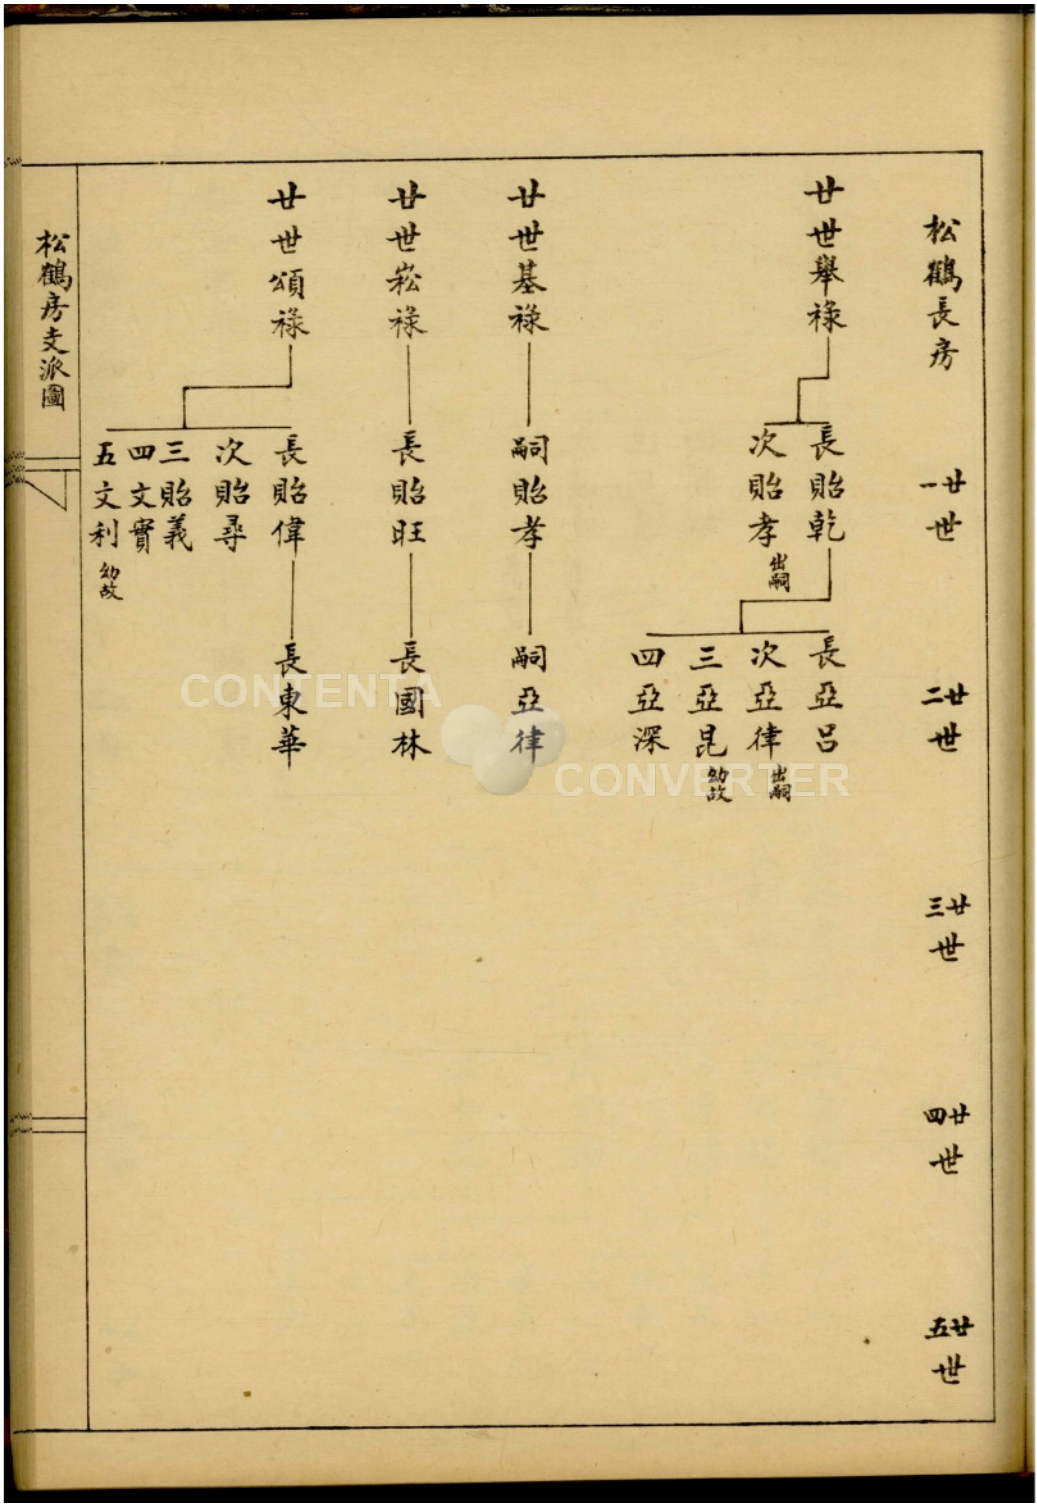 松鶴長房
廿一世
廿二世
廿三世
廿四世
廿五世
廿世舉祿
長貽乾
次貽孝 出嗣
長亞呂
次亞律 出嗣
三亞昆 幼故
四亞深
廿世基祿
嗣貽孝
嗣亞律
廿世崧祿
長貽旺
長國林
廿世頌祿
長貽偉
次貽尋
三貽義
四文實
五文利 幼故
長東華
松鶴房支派圖
CONTENTA
CONVERTER